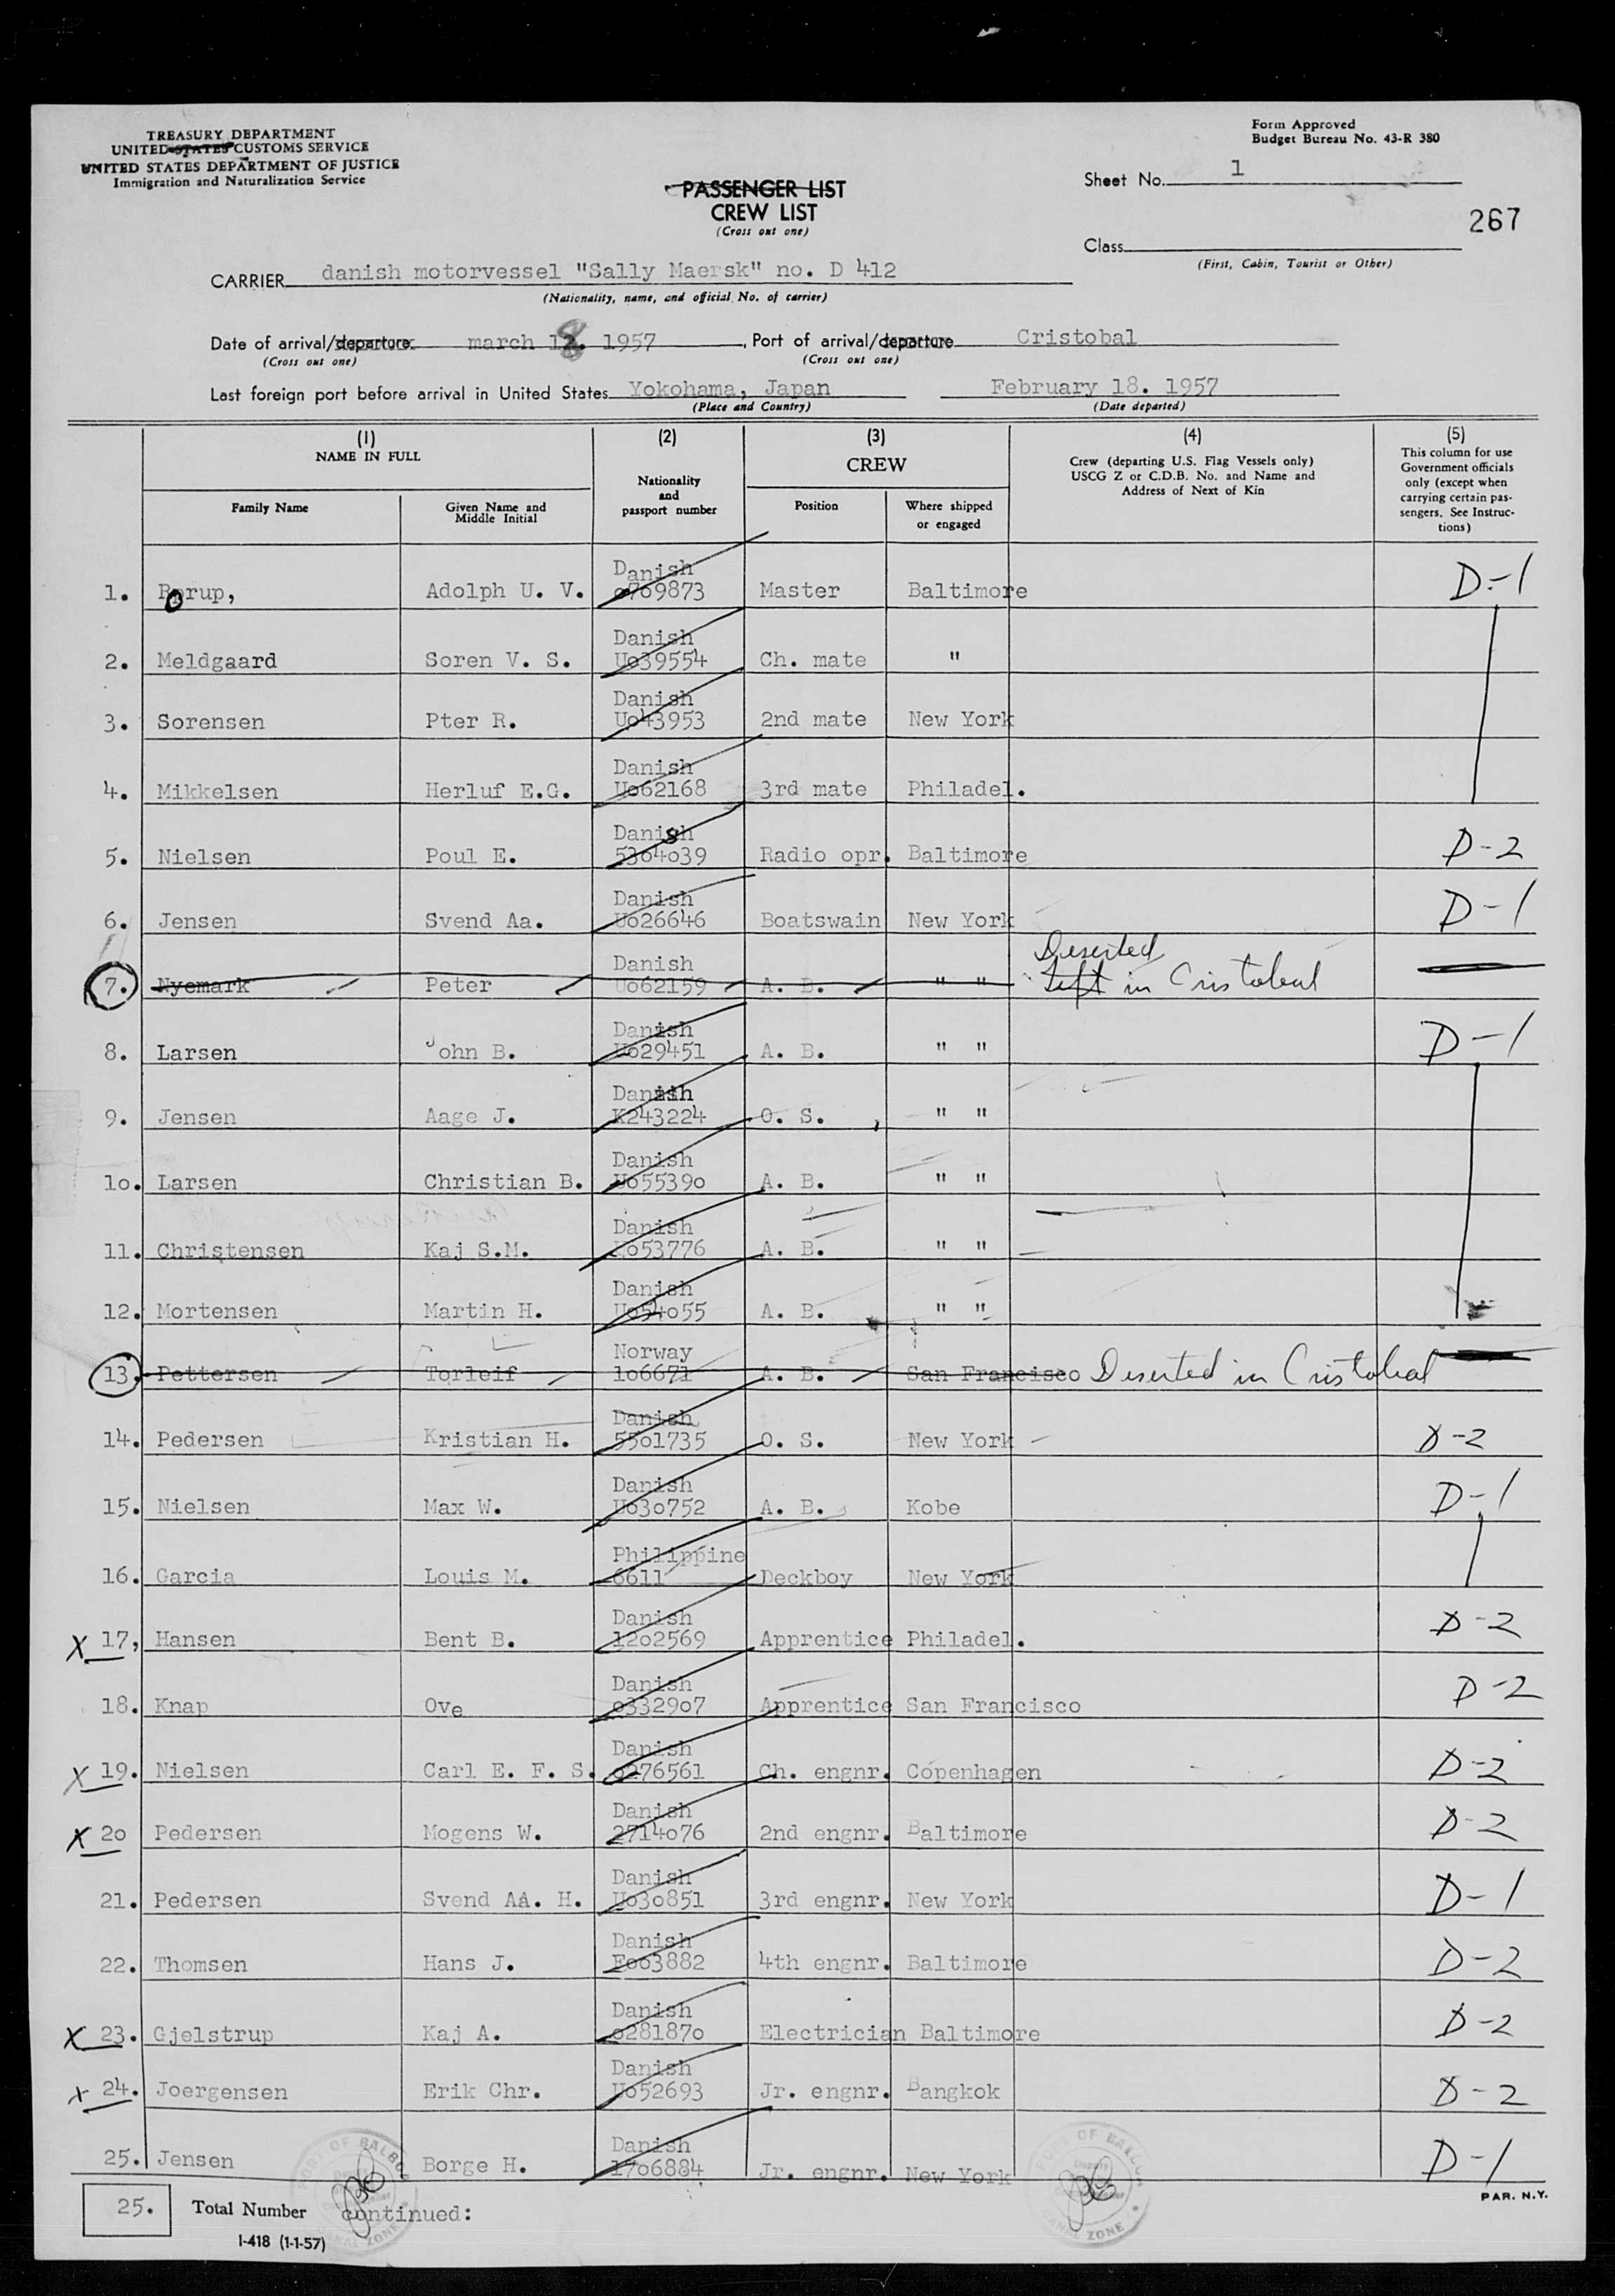 TREASURY DEPARTMENT
UNITED STATES CUSTOMS SERVICE
UNITED STATES DEPARTMENT OF JUSTICE
Immigration and Naturalization Service
Form Approved
Budget Bureau No. 43-R 380
Sheet No. 1
PASSENGER LIST
CREW LIST
(Cross out one)
267
Class
(First, Cabin, Tourist or Other)
CARRIER danish motorvessel "Sally Maersk" no. D 412
(Nationality, name, and official No. of carrier)
Date of arrival/departure march 18. 1957, Port of arrival/departure Cristobal
(Cross out one) (Cross out one)
Last foreign port before arrival in United States Yokohama, Japan February 18. 1957
(Place and Country) (Date departed)
(1) NAME IN FULL
Family Name
Given Name and Middle Initial
(2)
Nationality and passport number
(3)
CREW
Position
Where shipped or engaged
(4)
Crew (departing U.S. Flag Vessels only)
USCG Z or C.D.B. No. and Name and
Address of Next of Kin
(5)
This column for use
Government officials
only (except when
carrying certain pas-
sengers. See Instruc-
tions)
1. Borup, Adolph U. V. Danish 0769873 Master Baltimore D-1
2. Meldgaard Soren V. S. Danish Uo39554 Ch. mate "
3. Sorensen Pter R. Danish Uo43953 2nd mate New York
4. Mikkelsen Herluf E.G. Danish Uo62168 3rd mate Philadel.
5. Nielsen Poul E. Danish 5364o39 Radio opr. Baltimore D-2
6. Jensen Svend Aa. Danish Uo26646 Boatswain New York D-1
7. Nyemark Peter Danish Uo62159 A. B. " " Deserted Left in Cristobal
8. Larsen John B. Danish Uo29451 A. B. " " D-1
9. Jensen Aage J. Danish K243224 O. S. " "
1o. Larsen Christian B. Danish Uo5539o A. B. " "
11. Christensen Kaj S.M. Danish Uo53776 A. B. " "
12. Mortensen Martin H. Danish Uo54o55 A. B. " "
13. Pettersen Torleif Norway 1o6671 A. B. San Francisco Deserted in Cristobal
14. Pedersen Kristian H. Danish 55o1735 O. S. New York D-2
15. Nielsen Max W. Danish Uo3o752 A. B. Kobe D-1
16. Garcia Louis M. Philippine 6611 Deckboy New York
X 17, Hansen Bent B. Danish 12o2569 Apprentice Philadel. D-2
18. Knap Ove Danish o3329o7 Apprentice San Francisco D-2
X 19. Nielsen Carl E. F. S. Danish o276561 Ch. engnr. Copenhagen D-2
X 2o Pedersen Mogens W. Danish 2714o76 2nd engnr. Baltimore D-2
21. Pedersen Svend AA. H. Danish Uo3o851 3rd engnr. New York D-1
22. Thomsen Hans J. Danish Eoo3882 4th engnr. Baltimore D-2
X 23. Gjelstrup Kaj A. Danish o28187o Electrician Baltimore D-2
X 24. Joergensen Erik Chr. Danish Uo52693 Jr. engnr. Bangkok D-2
25. Jensen Borge H. Danish 17o6884 Jr. engnr. New York D-1
25. Total Number continued:
PAR. N.Y.
I-418 (1-1-57)
PORT OF BALBOA
CANAL ZONE
PORT OF BALBOA
CANAL ZONE